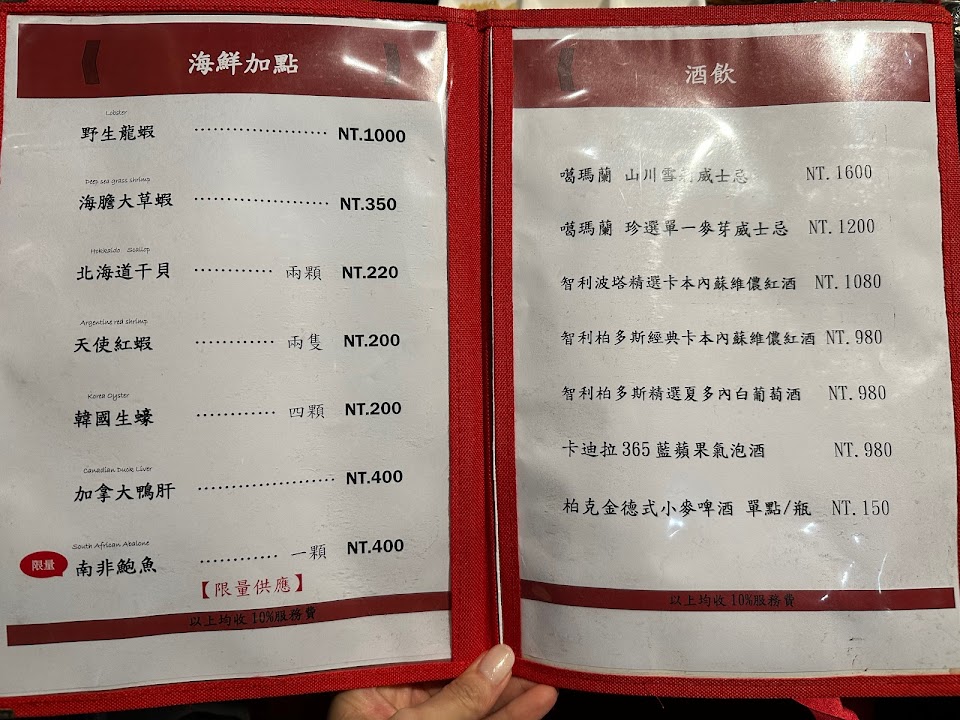 海鮮加點
Lobster
野生龍蝦 ···················· NT.1000
Deep sea grass shrimp
海膽大草蝦 ···················· NT.350
Hokkaido Scallop
北海道干貝 ············ 兩顆 NT.220
Argentine red shrimp
天使紅蝦 ············ 兩隻 NT.200
Korea Oyster
韓國生蠔 ············ 四顆 NT.200
Canadian Duck Liver
加拿大鴨肝 ···················· NT.400
South African Abalone
限量 南非鮑魚 ············ 一顆 NT.400
【限量供應】
以上均收10%服務費
酒飲
噶瑪蘭 山川雪 威士忌 NT.1600
噶瑪蘭 珍選單一麥芽威士忌 NT.1200
智利波塔精選卡本內蘇維儂紅酒 NT.1080
智利柏多斯經典卡本內蘇維儂紅酒 NT.980
智利柏多斯精選夏多內白葡萄酒 NT.980
卡迪拉365藍蘋果氣泡酒 NT.980
柏克金德式小麥啤酒 單點/瓶 NT.150
以上均收10%服務費